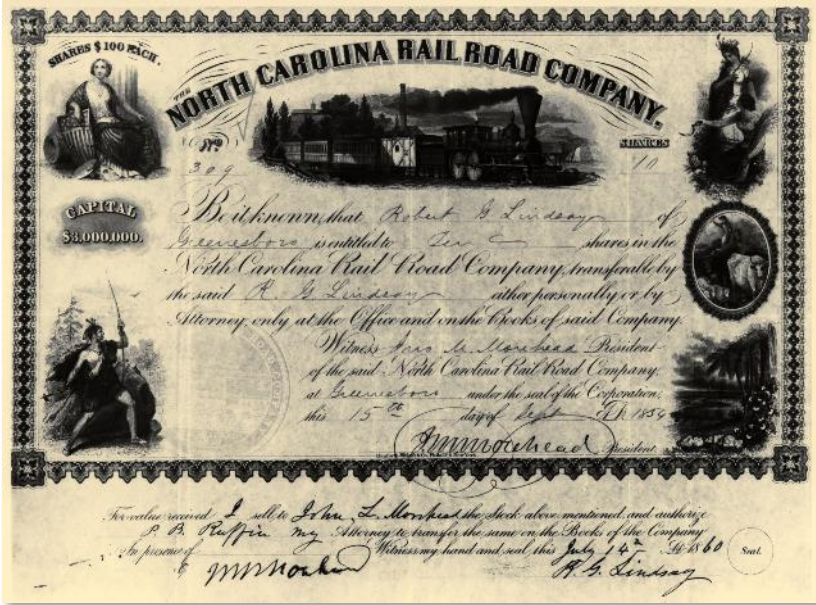 SHARES $100 EACH.
THE
NORTH CAROLINA RAIL ROAD COMPANY.
No.
309
SHARES
10
CAPITAL
$3,000,000.
Be it known, that Robert G Lindsay of
Greensboro is entitled to Ten shares in the
North Carolina Rail Road Company, transferable by
the said R. G Lindsay either personally or by
Attorney only at the Office and on the Books of said Company.
Witness Jno M. Morehead President
of the said North Carolina Rail Road Company,
at Greensboro under the seal of the Corporation,
this 15th day of Sept A.D. 1854
J M Morehead President
For value received I sell to John L. Morehead the Stock above mentioned, and authorize
P. B. Ruffin my Attorney to transfer the same on the Books of the Company
In presence of Witness my hand and seal this July 14th AD 1860 Seal.
J M Morehead R. G. Lindsay